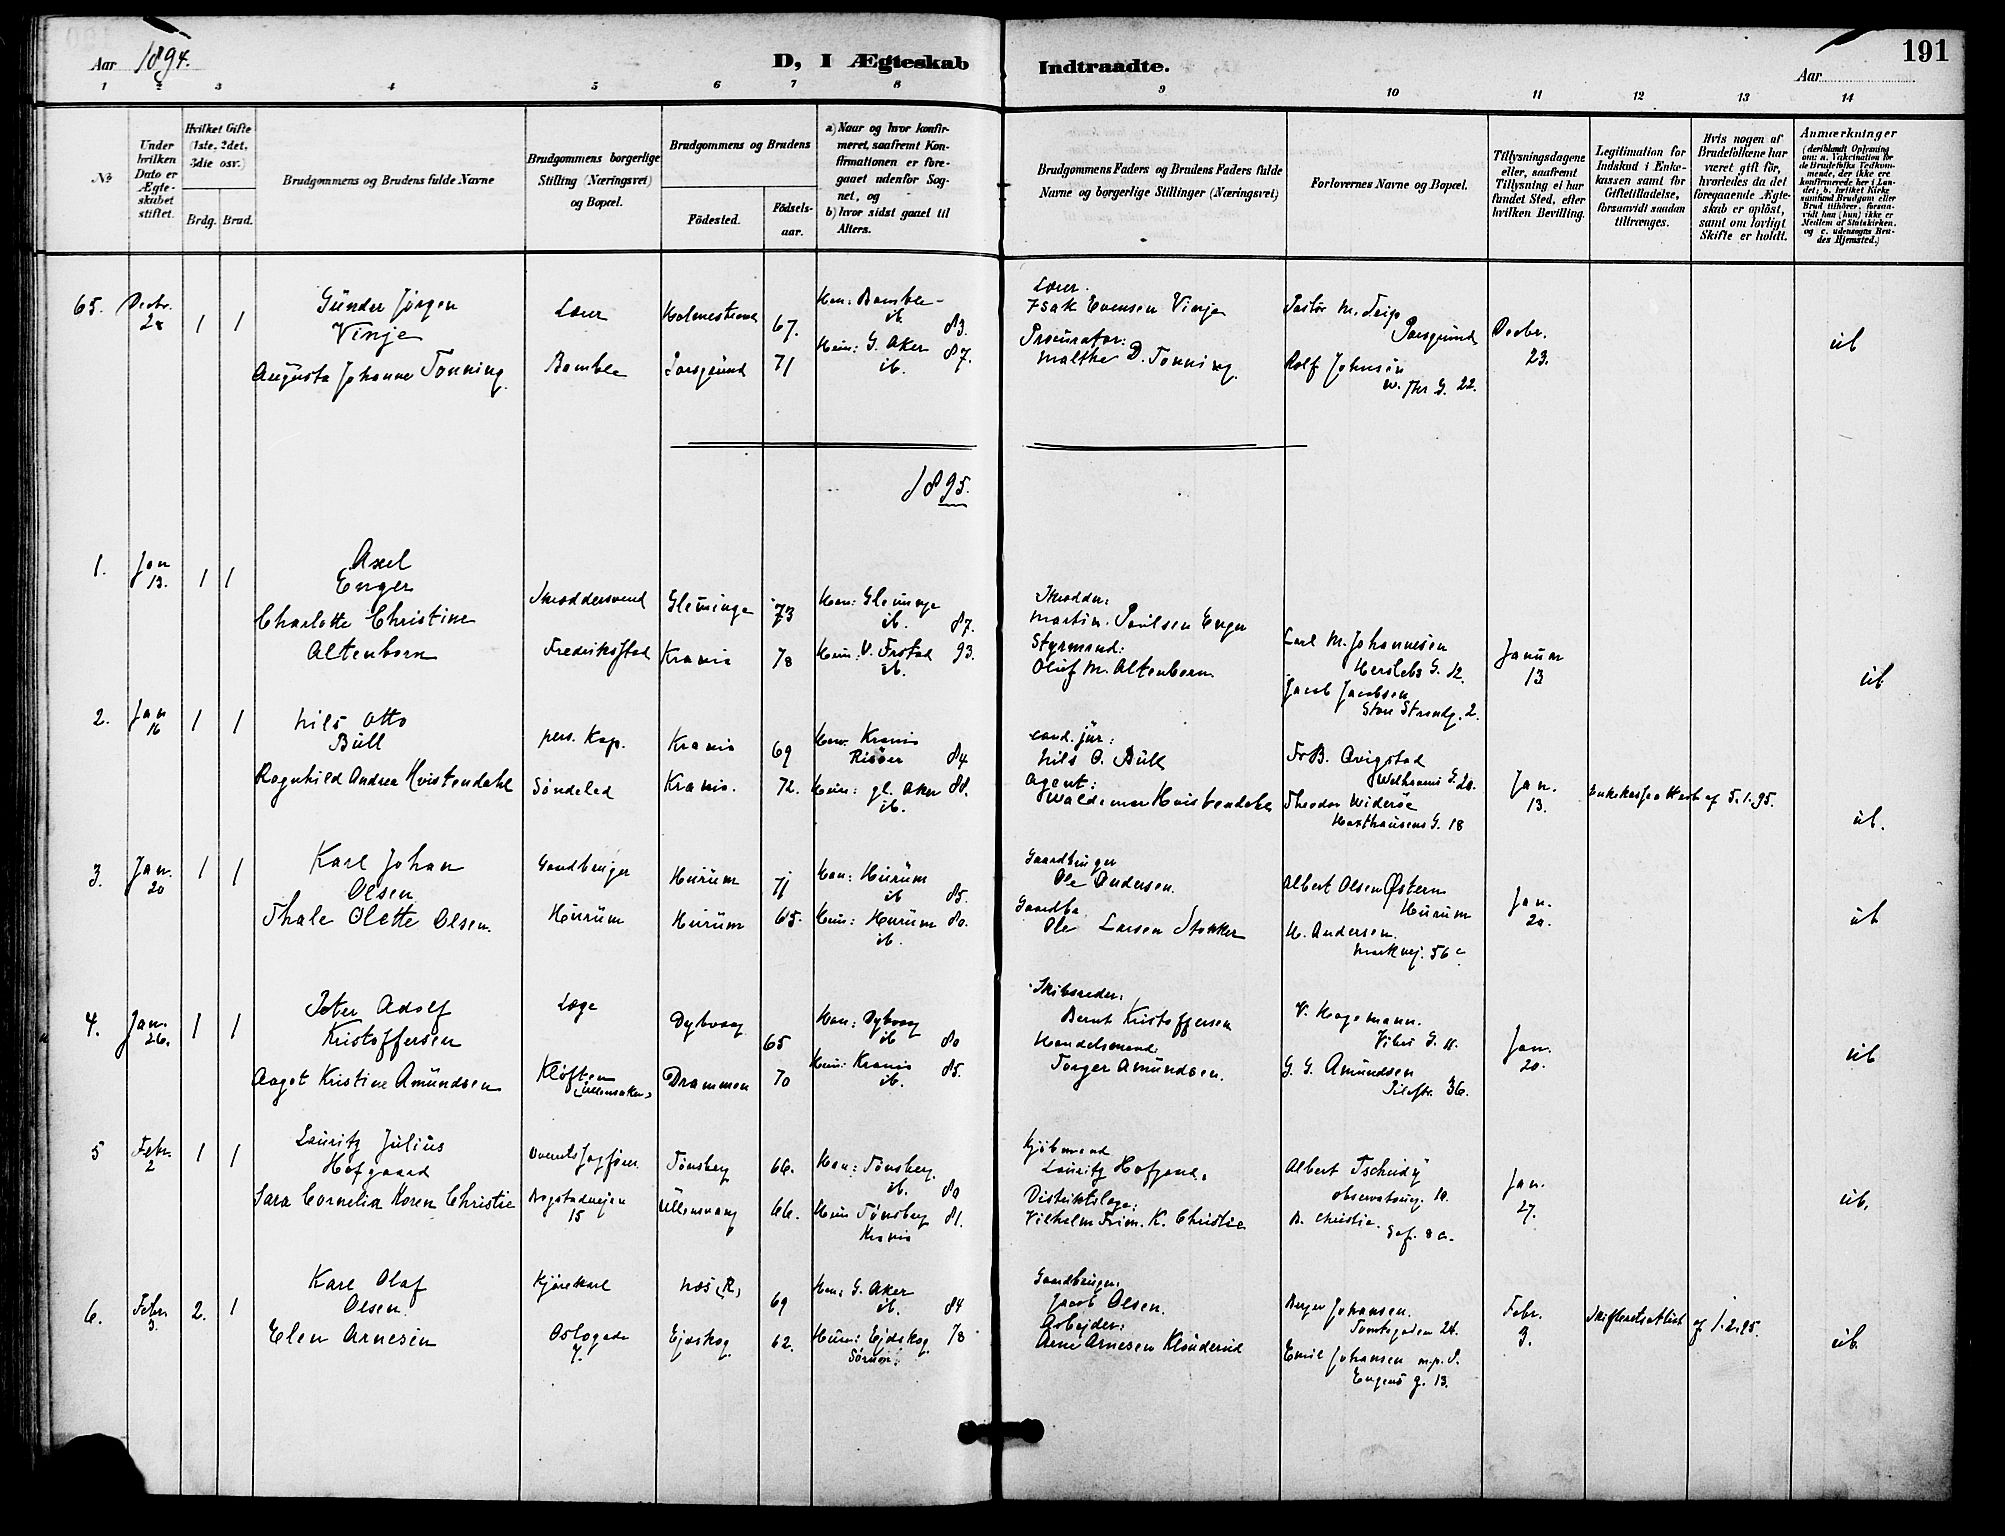 Aar 1894.
D, I Ægteskab Indtraadte.
Aar
191
1 2 3 4 5 6 7 8 9 10 11 12 13 14
№
Under hvilken Dato er Ægteskabet stiftet.
Hvilket Gifte (1ste, 2det, 3die osv.)
Brdg. Brud.
Brudgommens og Brudens fulde Navne
Brudgommens borgerlige Stilling (Næringsvei) og Bopæl.
Brudgommens og Brudens
Födested.
Födselsaar.
a) Naar og hvor konfirmeret, saafremt Konfirmationen er foregaaet udenfor Sognet, og
b) hvor sidst gaaet til Alters.
Brudgommens Faders og Brudens Faders fulde Navne og borgerlige Stillinger (Næringsvei)
Forlovernes Navne og Bopæl.
Tillysningsdagene eller, saafremt Tillysning ei har fundet Sted, efter hvilken Bevilling.
Legitimation for Indskud i Enkekassen samt for Giftetilladelse, forsaavidt saadan tiltrænges.
Hvis nogen af Brudefolkene har været gift för, hvorledes da det foregaaende Ægteskab er oplöst, samt om lovligt Skifte er holdt.
Anmærkninger
(deriblandt Oplysning om: a. Vakcination for de Brudefolks Vedkommende, der ikke ere konfirmerede her i Landet; b. hvilket Kirkesamfund Brudgom eller Brud tilhörer, forsaavidt han (hun) ikke er Medlem af Statskirken, og c. udensogns Brudes Hjemsted.)
65. Decbr. 28 1 1
Gunder Jørgen
Vinje
Augusta Johanne Tonning
Lærer
Bamble
Holmestrand 67.
Porsgrund 71
Han: Bamble -
ib. 83.
Hun: G. Aker 87.
ib.
Lærer.
Isak Evensen Vinje
Procurator:
Malthe D. Tonning.
Pastor M.
Porsgrund
Rolf Johnsen
Thr G. 22.
Decbr.
23.
ub
1895.
1. Jan 13. 1 1
Axel
Enger
Charlotte Christine
Altenborn
Skræddersvend
Fredriksstad
Glemminge 73
Krania 78
Han: Glemminge
ib. 87.
Hun: V. Frstad 93.
ib.
Skrædder:
Martin Paulsen Enger
Styrmand:
Oluf M. Altenborn.
Carl M. Johannesen
Herslebs G. 12.
Jacob Jacobsen
Store Strandg. 2.
Januar
13
ub
2. Jan 16 1 1
Nils Otto
Bull
Ragnhild Andrea Hvistendahl
pers. Kap.
Søndeled
Krania 69
Krania. 72.
Han. Krania
Risöer 84
Hun: gl. Aker 88.
ib.
cand. jur:
Nils O. Bull
Agent:
Waldemar Hvistendahl
Fr B. Qvigstad
Welhavens G. 20.
Theodor Widerøe
Haxthausens G. 18
Jan.
13.
Enkekasseattest af 5.1.95.
ub.
3. Jan. 20 1 1
Karl Johan
Olsen
Thale Olette Olsen.
Gaardbruger
Hurum
Hurum 71
Hurum 65.
Han: Hurum
ib 85.
Hun: Hurum 80.
ib.
Gaardbruger
Ole Andersen.
Gaardbr.
Ole Larsen Stokker
Albert Olsen Østern
Hurum
H. Andersen.
Markvej. 56 c
Jan.
20.
ub
4. Jan. 26. 1 1
Peter Adolf
Kristoffersen
Aagot Kristine Amundsen
Læge
Kløften
(Ullensaker)
Dybvaag 65
Drammen 70
Han: Dybvaag
ib 80
Hun: Krania 85.
ib.
Skibsreder:
Bernt Kristoffersen
Handelsmand:
Torger Amundsen.
V. Hagemann.
Vibes G. 11.
G. G. Amundsen
Pilestr. 36.
Jan.
20.
ub
5 Febr. 2 1 1
Lauritz Julius
Hofgaard
Sara Cornelia Koren Christie
Overretssagfører
Bogstadvejen
15
Tönsberg 66.
Ullensvang 66.
Han: Tönsberg.
ib. 80
Hun Tönsberg 81.
Krania
Kjöbmand
Lauritz Hofgaard.
Distriktslæge:
Vilhelm Frim. K. Christie
Albert Tschudy
observatorieg. 10.
B. Christie.
Sof. 8 a.
Jan.
27.
ub.
6. Febr. 3. 2. 1
Karl Olaf
Olsen.
Elen Arnesen
Kjørekarl
Oslogade
7.
Næs (R) 69
Ejdskog 62.
Han: G. Aker
ib. 84
Hun: Ejdskog. 78
Gaardbruger:
Jacob Olsen.
Arbejder:
Arne Arnesen Klanderud
Berger Johansen.
Tomtegaden 24.
Emil Johansen m.p.P.
Engens g. 13.
Febr.
3.
Skifteretsattest af 1.2.95.
ub.